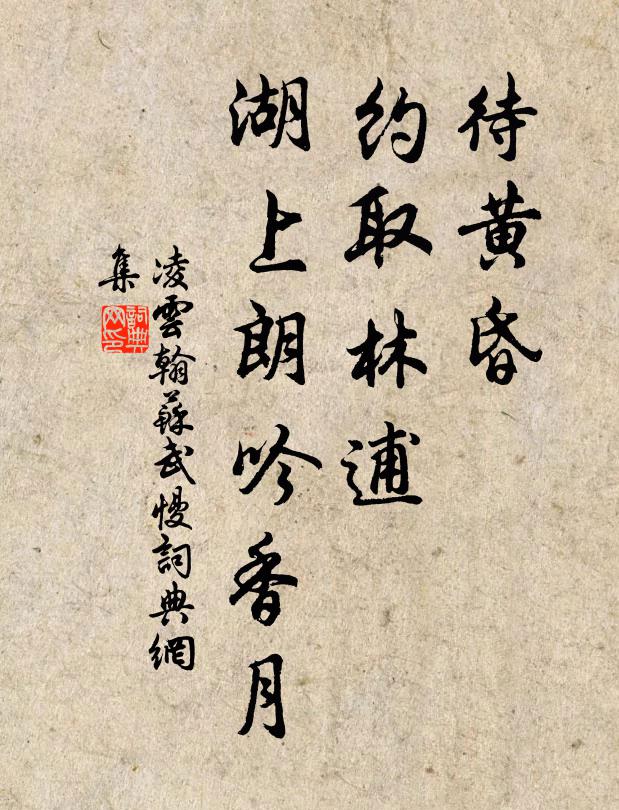 待黃昏
約取林逋
湖上朗吟香月
凌雲翰蘇武慢詞典網
集
詞典網印